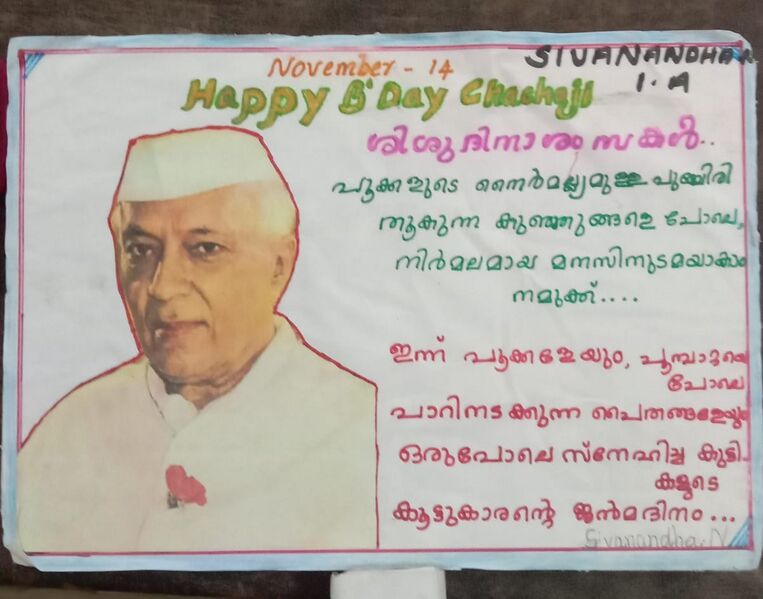 November - 14
SIVANANDHA
1.A
Happy B'Day Chachaji
ശിശുദിനാശംസകൾ..
പൂക്കളുടെ നൈർമല്യമുള്ള പുഞ്ചിരി
തൂകുന്ന കുഞ്ഞുങ്ങളെ പോലെ,
നിർമലമായ മനസിനുടമയാകാം
നമുക്ക്....
ഇന്ന് പൂക്കളേയും, പൂമ്പാറ്റയെ
പോലെ
പാറിനടക്കുന്ന പൈതങ്ങളേയും
ഒരുപോലെ സ്നേഹിച്ച കുട്ടി-
കളുടെ
കൂട്ടുകാരന്റെ ജൻമദിനം...
Sivanandha.N